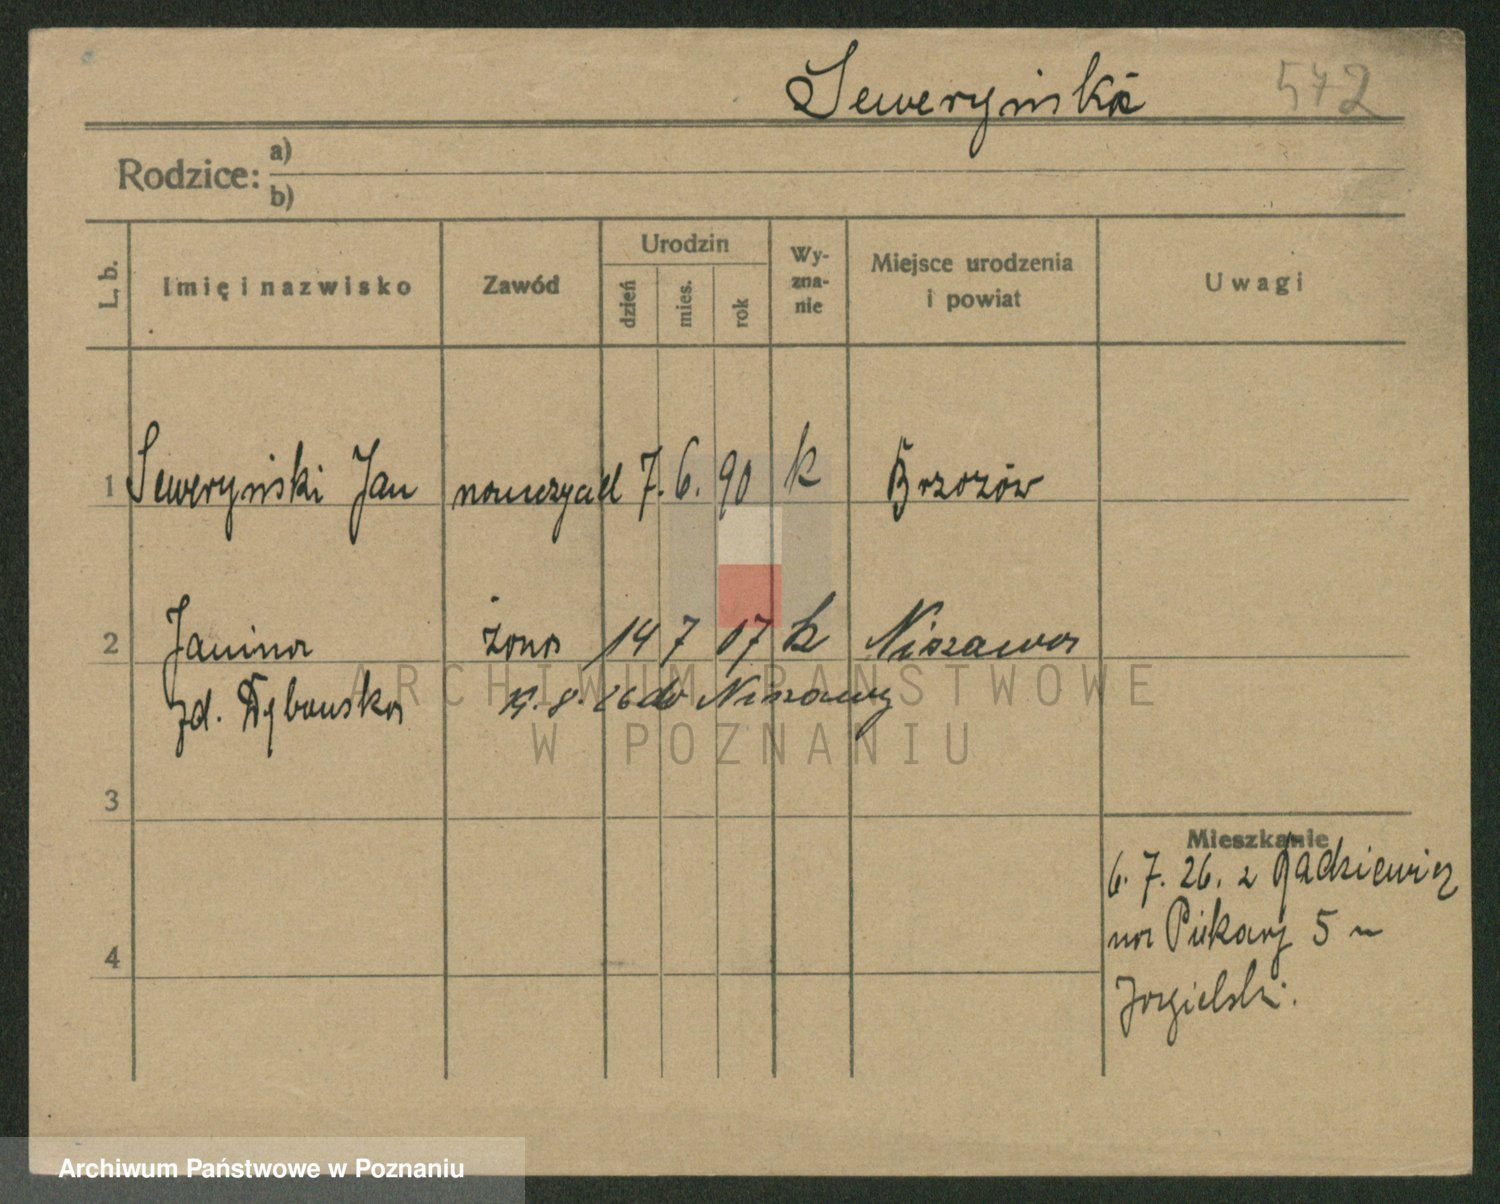 Seweryński
572
Rodzice: a)
b)
L. b. Imię i nazwisko Zawód Urodzin dzień mies. rok Wy-zna-nie Miejsce urodzenia i powiat Uwagi
1 Seweryński Jan nauczyciel 7. 6. 90 k Brzozów
2 Janina żona 14 7 07 k Nieszawa
zd. Dębowska 8. 26 do Nieszawy
3
Mieszkanie
6. 7. 26. z Radziewicz
na Piekary 5
4
Jagielski.
ARCHIWUM PAŃSTWOWE
W POZNANIU
Archiwum Państwowe w Poznaniu